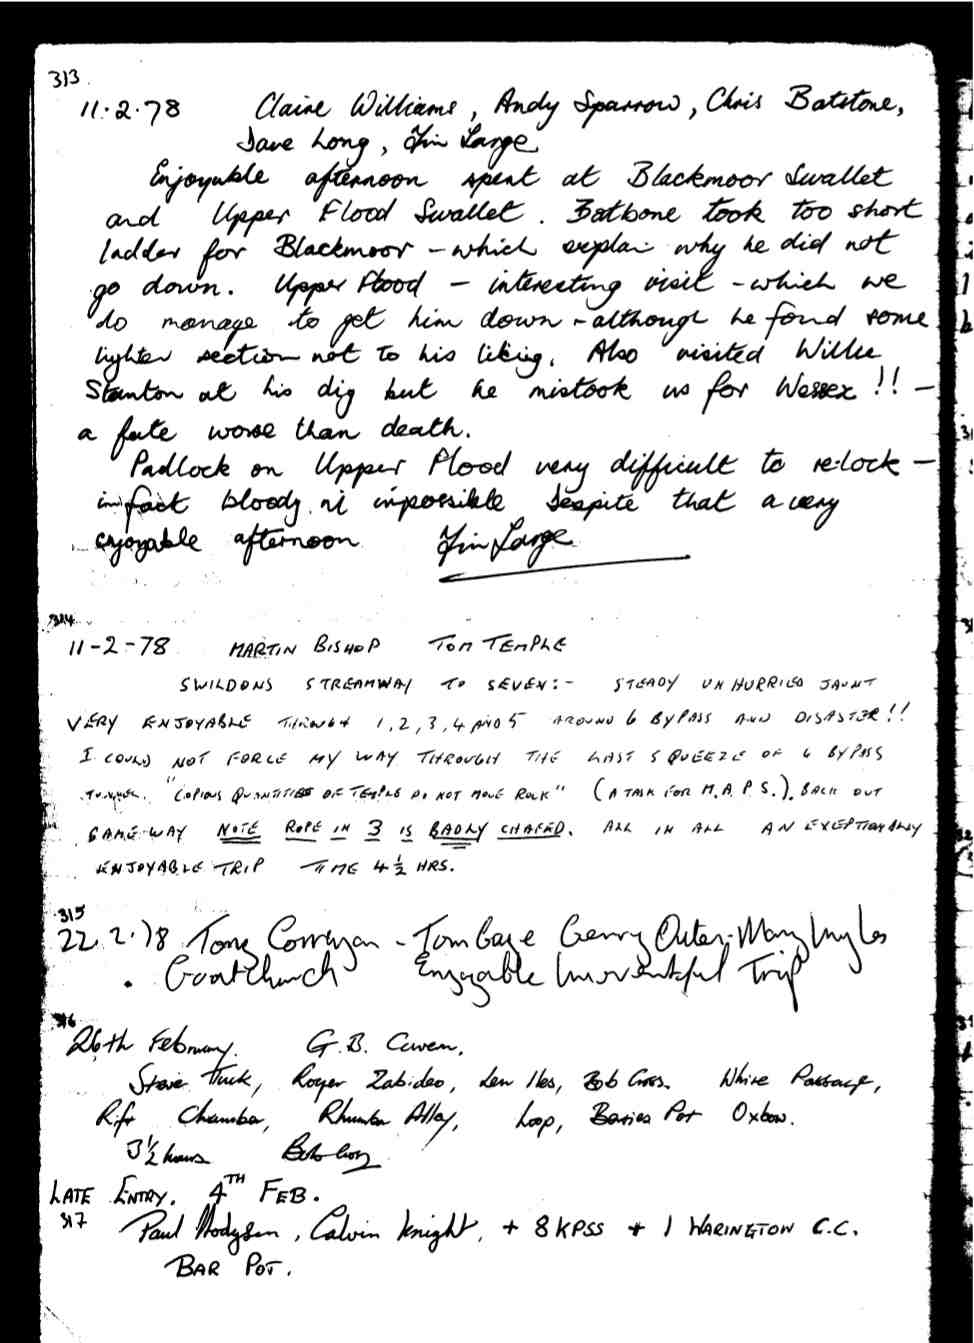 313
11.2.78 Claire Williams, Andy Sparrow, Chris Batstone,
Dave Long, Tim Large
Enjoyable afternoon spent at Blackmoor Swallet
and Upper Flood Swallet. Batbone took too short
ladder for Blackmoor - which explain why he did not
go down. Upper Flood - interesting visit - which we
do manage to get him down - although he fond some
tighter section not to his liking. Also visited Willie
Stanton at his dig but he mistook us for Wessex!! -
a fate worse than death.
Padlock on Upper Flood very difficult to re-lock -
in fact bloody impossible despite that a very
enjoyable afternoon Tim Large
314
11-2-78 MARTIN BISHOP TOM TEMPLE
SWILDONS STREAMWAY TO SEVEN:- STEADY UNHURRIED JAUNT
VERY ENJOYABLE THROUGH 1,2,3,4 AND 5 AROUND 6 BYPASS AND DISASTER!!
I COULD NOT FORCE MY WAY THROUGH THE LAST SQUEEZE OF 6 BYPASS
"COPIOUS QUANTITIES OF TEMPLE DO NOT MOVE ROCK" (A TASK FOR M.A.P.S.). BACK OUT
SAME WAY NOTE ROPE IN 3 IS BADLY CHAFED. ALL IN ALL AN EXCEPTIONALLY
ENJOYABLE TRIP TIME 4½ HRS.
315
22.2.78 Tony Corrigan - Tom Gage Gerry Outen
Goatchurch Enjoyable Uneventful Trip
316
26th February. G.B. Cavern.
Steve Tuck, Roger Zabideo, Len Iles, Bob Cross. White Passage,
Rift Chamber, Rhumba Alley, Loop, Bertie's Pot Oxbow.
3½ hours Bob Cross
LATE ENTRY. 4TH FEB.
317 Paul Hodgson, Calvin Knight, + 8 KPSS + 1 WARINGTON C.C.
BAR POT.